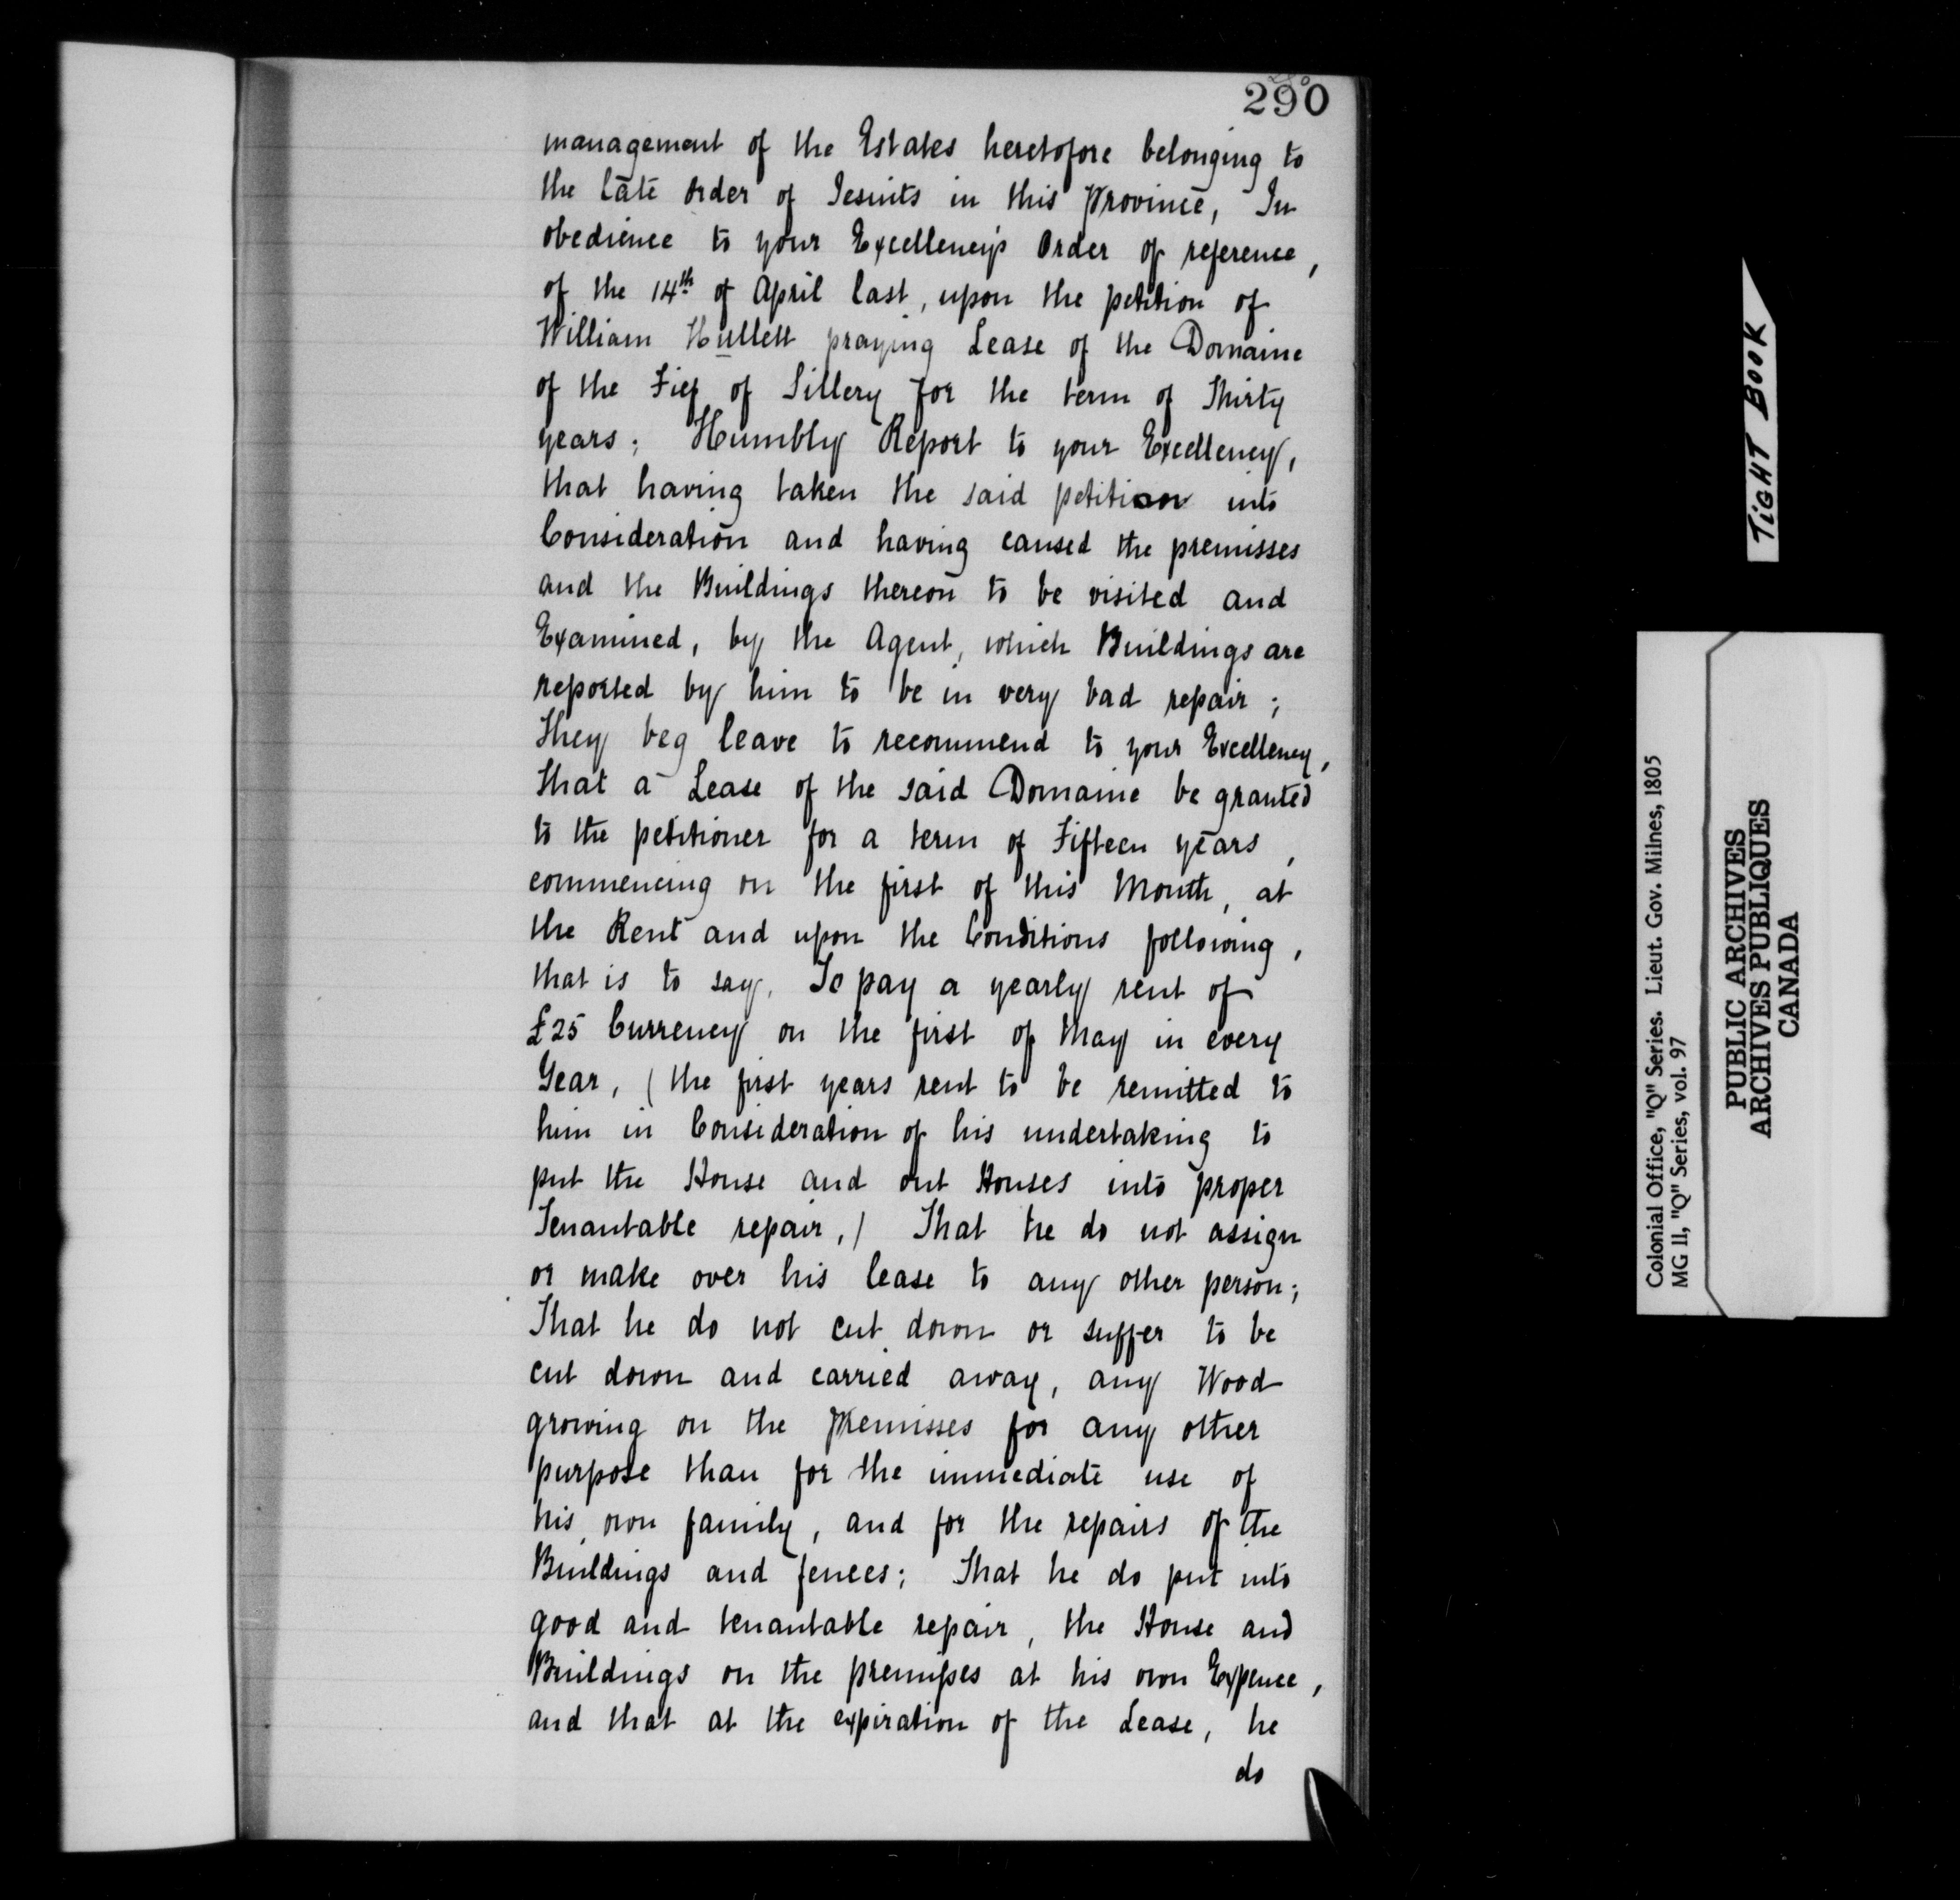 290
management of the Estates heretofore belonging to
the late order of Jesuits in this Province, In
obedience to your Excellency's Order of reference,
of the 14th of April last, upon the petition of
William Hullett praying Lease of the Domaine
of the Fief of Sillery for the term of Thirty
years; Humbly Report to your Excellency,
that having taken the said petition into
Consideration and having caused the premisses
and the Buildings thereon to be visited and
Examined, by the Agent, which Buildings are
reported by him to be in very bad repair;
They beg leave to recommend to your Excellency,
that a Lease of the said Domaine be granted
to the petitioner for a term of Fifteen years,
commencing on the first of this Month, at
the Rent and upon the Conditions following,
that is to say, To pay a yearly rent of
£25 Currency on the first of May in every
Year, (the first years rent to be remitted to
him in Consideration of his undertaking to
put the House and out Houses into proper
Tenantable repair,) That he do not assign
or make over his lease to any other person;
That he do not cut down or suffer to be
cut down and carried away, any Wood
growing on the Premisses for any other
purpose than for the immediate use of
his own family, and for the repairs of the
Buildings and fences; That he do put into
good and tenantable repair, the House and
Buildings on the premisses at his own Expence,
and that at the expiration of the Lease, he
do
TIGHT BOOK
Colonial Office, "Q" Series. Lieut. Gov. Milnes, 1805
MG 11, "Q" Series, vol. 97
PUBLIC ARCHIVES
ARCHIVES PUBLIQUES
CANADA